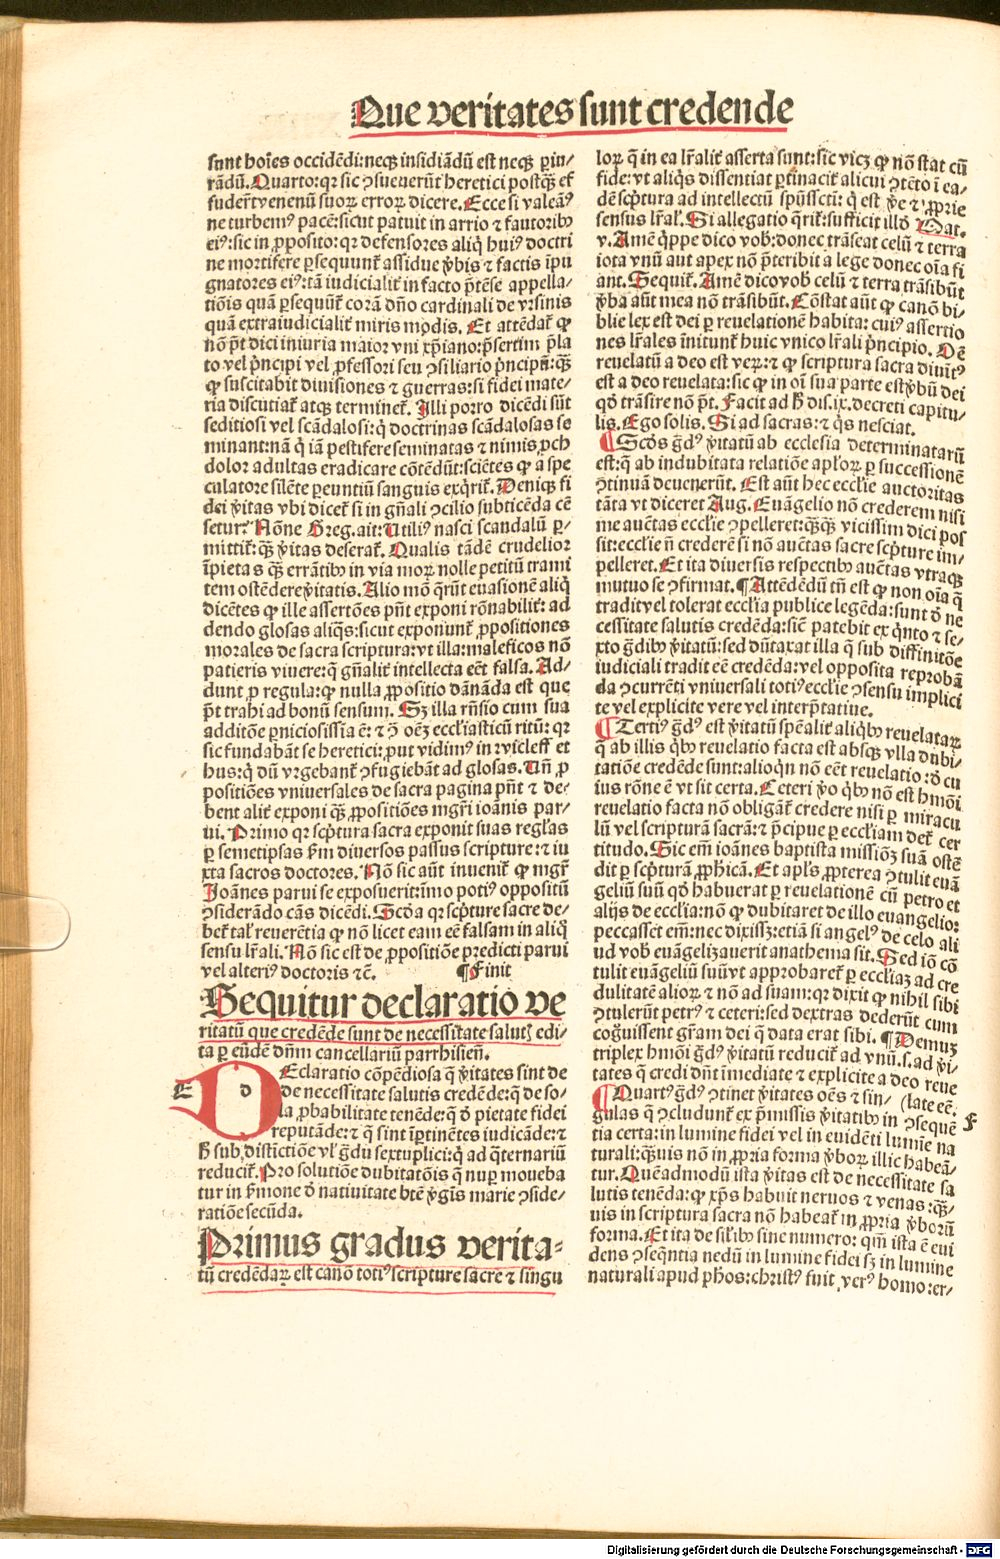 Que veritates sunt credende
sunt hoīes occidēdi: neqꝫ insidiādū est neqꝫ ꝑiu/
rādū. Quarto: qꝛ sic ꝯsueuerūt heretici postqꝫ ef
fuderūt venenū suoꝝ erroꝝ dicere. Ecce si valeāꝰ
ne turbemꝰ pacē: sicut patuit in arrio ⁊ fautoribꝰ
eiꝰ: sic in ꝓposito: qꝛ defensores aliq̄ huiꝰ doctri
ne mortifere ꝑsequunt᷑ assidue v̄bis ⁊ factis īpu
gnatores eiꝰ: tā iudicialit᷑ in facto p̄tēse appella/
tiōis quā ꝑsequūt᷑ corā dn̄o cardinali de vrsinis
quā extraiudicialit᷑ miris modis. Et attēdat᷑ ꝙ
nō p̄t dici iniuria maior vni xp̄iano: p̄sertim p̄la
to vel pͥncipi vel ꝓfessori seu ꝯsiliario pͥncipū: qꝫ
ꝙ suscitabit diuisiones ⁊ guerras: si fidei mate/
ria discutiat᷑ atqꝫ terminet᷑. Illi porro dicēdi sūt
seditiosi vel scādalosi: qͥ doctrinas scādalosas se
minant: nā qͥ iā pestifere seminatas ⁊ nimis ꝓch
dolor adultas eradicare cōtēdūt: sciētes ꝙ a spe
culatore silēte ꝑeuntiū sanguis exqͥrit᷑. Deniqꝫ fi
dei v̄itas vbi dicet᷑ si in gn̄ali ꝯcilio subticēda cē
setur? Nōne Greg. ait: Utiliꝰ nasci scandalū ꝑ-
mittit᷑: qꝫ v̄itas deserat᷑. Qualis tādē crudelior
īpietas qꝫ errātibꝰ in via moꝝ nolle petitū trami
tem ostēdere v̄itatis. Alio mō q̄rūt euasionē aliq̄
dicētes ꝙ ille assertōes pn̄t exponi rōnabilit᷑: ad
dendo glosas aliq̄s: sicut exponunt᷑ ꝓpositiones
morales de sacra scriptura: vt illa: maleficos nō
patieris viuere: q̄ gn̄alit᷑ intellecta eēt falsa. Ad-
dunt ꝓ regula: ꝙ nulla ꝓpositio dānāda est que
p̄t trahi ad bonū sensum. Sꝫ illa rn̄sio cum sua
additōe ꝑniciosissia ē: ⁊ ꝯ̄ oēꝫ eccl̄iasticū ritū: qꝛ
sic fundabāt se heretici: ꝓut vidimꝰ in wicleff et
hus: qͥ dū vrgebant᷑ ꝯfugiebāt ad glosas. Un̄ ꝓ
positiōes vniuersales de sacra pagina pn̄t ⁊ de/
bent alit᷑ exponi qꝫ ꝓpositiōes mgr̄i ioānis par/
ui. Primo qꝛ scp̄tura sacra exponit suas regl̄as
ꝑ semetipsas ẜm diuersos passus scripture: ⁊ iu
xta sacros doctores. Nō sic aūt inuenit᷑ ꝙ mgr̄
Ioānes parui se exposuerit: īmo potiꝰ oppositū
ꝯsiderādo cās dicēdi. Scd̄a qꝛ scp̄ture sacre de/
bet᷑ tal᷑ reuerētia ꝙ nō licet eam eē falsam in aliq̄
sensu lr̄ali. Nō sic est de ꝓpositiōe p̄redicti parui
vel alteriꝰ doctoris ⁊c̄.   ¶ Finit
Sequitur declaratio ve
ritatū que credēde sunt de necessitate salutꝫ edi/
ta ꝑ eūdē dn̄m cancellariū parrhisien̄.
E
DEclaratio cōpēdiosa q̄ v̄itates sint de
de necessitate salutis credēde: q̄ de so/
la ꝓbabilitate tenēde: q̄ ð pietate fidei
reputāde: ⁊ q̄ sint īꝑtinētes iudicāde: ⁊
ꝧ sub distictiōe vl̓ gͣdu sextuplici: qͥ ad qͣternariū
reducit᷑. Pro solutiōe dubitatōis q̄ nuꝑ moueba
tur in ẜmone ð natiuitate btē v̄gis marie ꝯside/
ratiōe secūda.
Primus gradus verita-
tū credēdaꝝ est canō totiꝰ scripture sacre ⁊ singu
loꝝ q̄ in ea lr̄alit᷑ asserta sunt: sic vicꝫ ꝙ nō stat cū
fide: vt aliqͥs dissentiat ꝑtīnacit᷑ alicui ꝯtēto ī ea/
dē scp̄tura ad intellectū spūssctī: qͥ est v̄e ⁊ ꝓprie
sensus lr̄al̓. Si allegatio q̄rit᷑: sufficit illð Mat.
v. Amē qͥppe dico vob: donec trāseat celū ⁊ terra
iota vnū aut apex nō p̄teribit a lege donec oīa fi
ant. Sequit᷑. Amē dico vob celū ⁊ terra trāsibūt
v̄ba aūt mea nō trāsibūt. Cōstat aūt ꝙ canō bi-
blie lex est dei ꝑ reuelationē habita: cuiꝰ assertio
nes lr̄ales īnitunt᷑ huic vnico lr̄ali pͥncipio. Oē
reuelatū a deo est veꝝ: ⁊ ꝙ scriptura sacra diuītꝰ
est a deo reuelata: sic ꝙ in oī sua parte est v̄bū dei
qð trāsire nō p̄t. Facit ad ꝧ dis. ix. decreti capitu/
lis. Ego solis. Si ad sacras: ⁊ qͥs nesciat.
¶ Scðs gͣdꝰ v̄itatū ab ecclesia determinatarū
est: q̄ ab indubitata relatiōe apl̓oꝝ ꝑ successionē
ꝯtinuā deuenerūt. Est aūt hec ecclīe auctoritas
tāta vt diceret Aug. Euāgelio nō crederem nisi
me auctas ecclīe ꝯpelleret: qꝫqꝫ vicissim dici pos
sit: ecclīe n̄ crederē si nō auctas sacre scp̄ture im/
pelleret. Et ita diuersis respectibꝰ auctas vtraqꝫ
mutuo se ꝯfirmat. ¶ Attēdēdū tn̄ est ꝙ non oīa q̄
tradit vel tolerat eccl̄ia publice legēda: sunt ð ne
cessitate salutis credēda: sic̄ patebit ex qͥnto ⁊ se/
xto gͣdibꝰ v̄itatū: sed dūtaxat illa q̄ sub diffinitōe
iudiciali tradit eē credēda: vel opposita reprobā
da ꝯcurrēti vniuersali totiꝰ ecclīe ꝯsensu implici
te vel explicite vere vel interp̄tatiue.
¶ Tertiꝰ gͣdꝰ est v̄itatū spēalit᷑ aliqͥbꝰ reuelataꝝ
q̄ ab illis qͥbꝰ reuelatio facta est absqꝫ vlla dubi/
tatiōe credēde sunt: alioqͥn nō eēt reuelatio: ð cu
ius rōne ē vt sit certa. Ceteri v̄o qͥbꝰ nō est hmōi
reuelatio facta nō obligāt᷑ credere nisi ꝑ miracu
lū vel scripturā sacrā: ⁊ p̄cipue ꝑ eccl̄iam det᷑ cer
titudo. Sic em̄ ioānes baptista missiōꝫ suā ostē
dit ꝑ scp̄turā ꝓph̓icā. Et apl̓s ꝓpterea ꝯtulit euā
geliū suū qð habuerat ꝑ reuelationē cū petro et
alijs de eccl̄ia: nō ꝙ dubitaret de illo euangelio:
peccasset em̄: nec dixissꝫ: etiā si angelꝰ de celo ali
ud vob euāgelizauerit anathema sit. Sed iō cō
tulit euāgeliū suū vt approbaret᷑ ꝑ eccl̄iaꝫ ad cre
dulitatē alioꝝ ⁊ nō ad suam: qꝛ dixit ꝙ nihil sibi
ꝯtulerūt petrꝰ ⁊ ceteri: sed dextras dederūt cum
cogͦuissent gr̄am dei q̄ data erat sibi. ¶ Demuꝫ
triplex hmōi gͣdꝰ v̄itatū reducit᷑ ad vnū. s. ad v̄i-
tates q̄ credi dn̄t īmediate ⁊ explicite a deo reue
¶ Quartꝰ gͣdꝰ ꝯtinet v̄itates oēs ⁊ sin/ (late eē.
gulas q̄ ꝯcludunt᷑ ex p̄missis v̄itatibꝰ in ꝯsequē
F
tia certa: in lumine fidei vel in euidēti lumīe na
turali: qꝫuis non in ꝓpria forma v̄boꝝ illic habeā/
tur. Quēadmodū ista v̄itas est de necessitate sa
lutis tenēda: ꝙ xp̄s habuit neruos ⁊ venas: qꝫ/
uis in scriptura sacra nō habeat᷑ in ꝓpria v̄borū
forma. Et ita de sil̓ibꝰ sine numero: qm̄ ista ē eui
dens ꝯseqn̄tia nedū in lumine fidei sꝫ in lumine
naturali apud ph̓os: christꝰ fuit verꝰ homo: er/
Digitalisierung gefördert durch die Deutsche Forschungsgemeinschaft - DFG